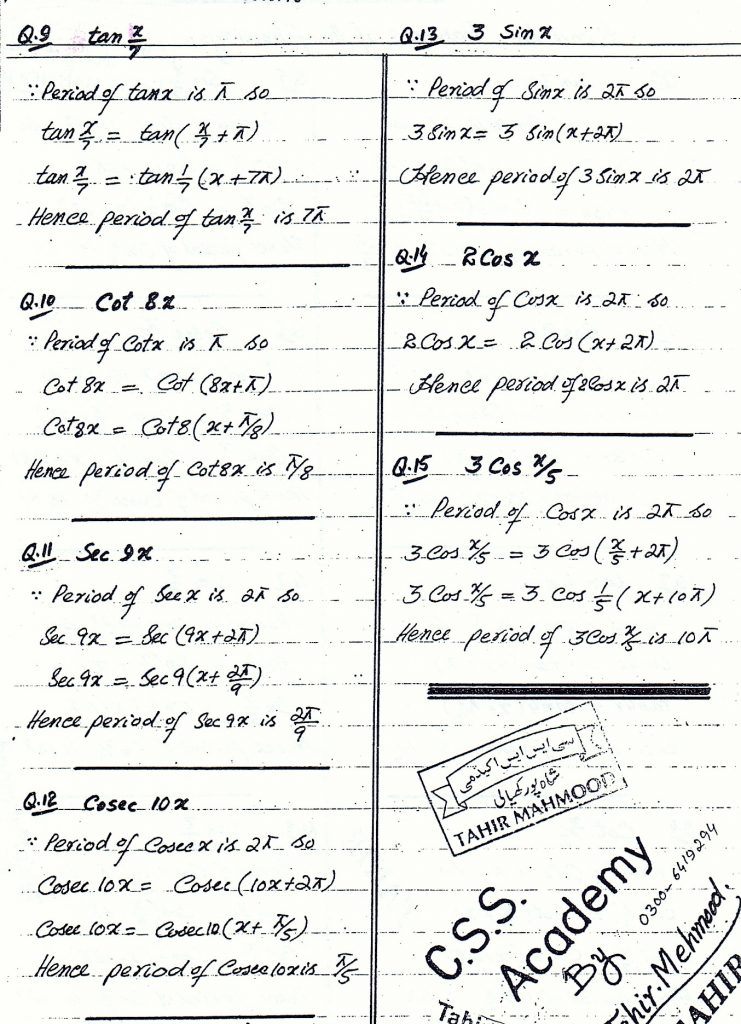 Q.9 tan x/7
∵ Period of tanx is π so
tan x/7 = tan( x/7 + π)
tan x/7 = tan 1/7 (x + 7π)
Hence period of tan x/7 is 7π
Q.10 Cot 8x
∵ Period of Cotx is π so
Cot 8x = Cot (8x+π)
Cot8x = Cot8(x+π/8)
Hence period of Cot8x is π/8
Q.11 Sec 9x
∵ Period of Sec x is 2π so
Sec 9x = Sec (9x+2π)
Sec 9x = Sec 9(x+ 2π/9)
Hence period of Sec 9x is 2π/9
Q.12 Cosec 10x
∵ Period of Cosec x is 2π so
Cosec 10x = Cosec (10x+2π)
Cosec 10x = Cosec10(x+ π/5)
Hence period of Cosec10x is π/5
Q.13 3 Sin x
∵ Period of Sinx is 2π so
3 Sin x = 3 Sin(x+2π)
Hence period of 3 Sinx is 2π
Q.14 2 Cos x
∵ Period of Cosx is 2π so
2 Cos x = 2 Cos (x+ 2π)
Hence period of 2Cosx is 2π
Q.15 3 Cos x/5
∵ Period of Cosx is 2π so
3 Cos x/5 = 3 Cos (x/5 + 2π)
3 Cos x/5 = 3 Cos 1/5 (x+10π)
Hence period of 3Cos x/5 is 10π
سی ایس ایس اکیڈمی
TAHIR MAHMOOD
C.S.S.
Academy
By
0300-6419294
Mehmood.